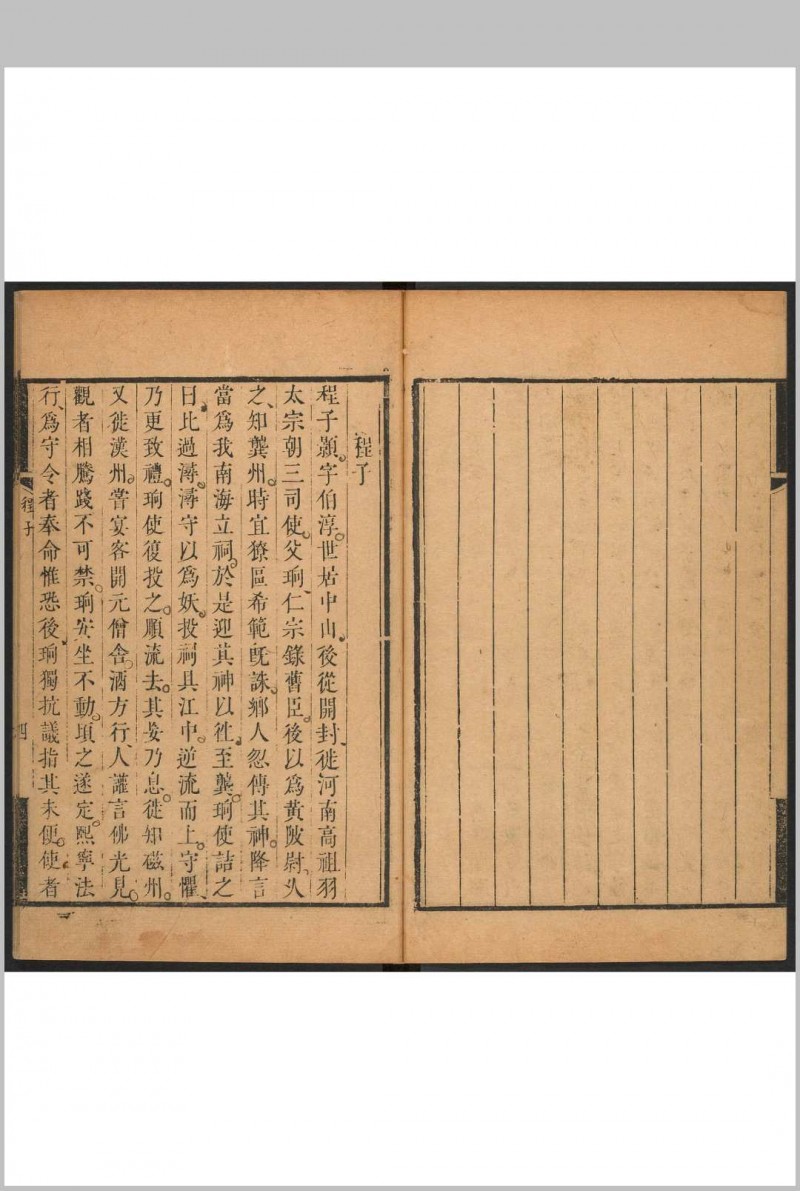 程子
程子顥字伯淳世居中山後從開封徙河南高祖羽
太宗朝三司使父珦仁宗錄舊臣後以為黃陂尉久
之知龔州時宜獠區希範既誅鄉人忽傳其神降言
當為我南海立祠於是迎其神以徃至龔珦使詰之
曰比過潯潯守以為妖投祠具江中逆流而上守懼
乃更致禮珦使復投之順流去其妄乃息徙知磁州
又徙漢州嘗宴客開元僧舍酒方行人讙言佛光見
觀者相騰踐不可禁珦安坐不動頃之遂定熙寧法
行為守令者奉命惟恐後珦獨抗議指其未便使者
程子
四